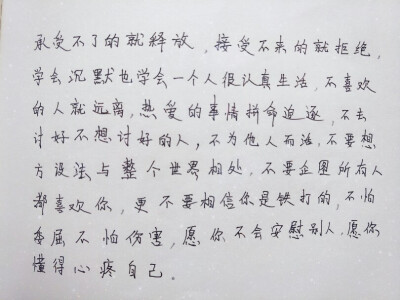 承受不了的就释放，接受不来的就拒绝，
学会沉默也学会一个人很认真生活，不喜欢
的人就远离，热爱的事情拼命追逐，不去
讨好不想讨好的人，不为他人而活，不要想
方设法与整个世界相处，不要企图所有人
都喜欢你，更不要相信你是铁打的，不怕
委屈不怕伤害，愿你不会安慰别人，愿你
懂得心疼自己。